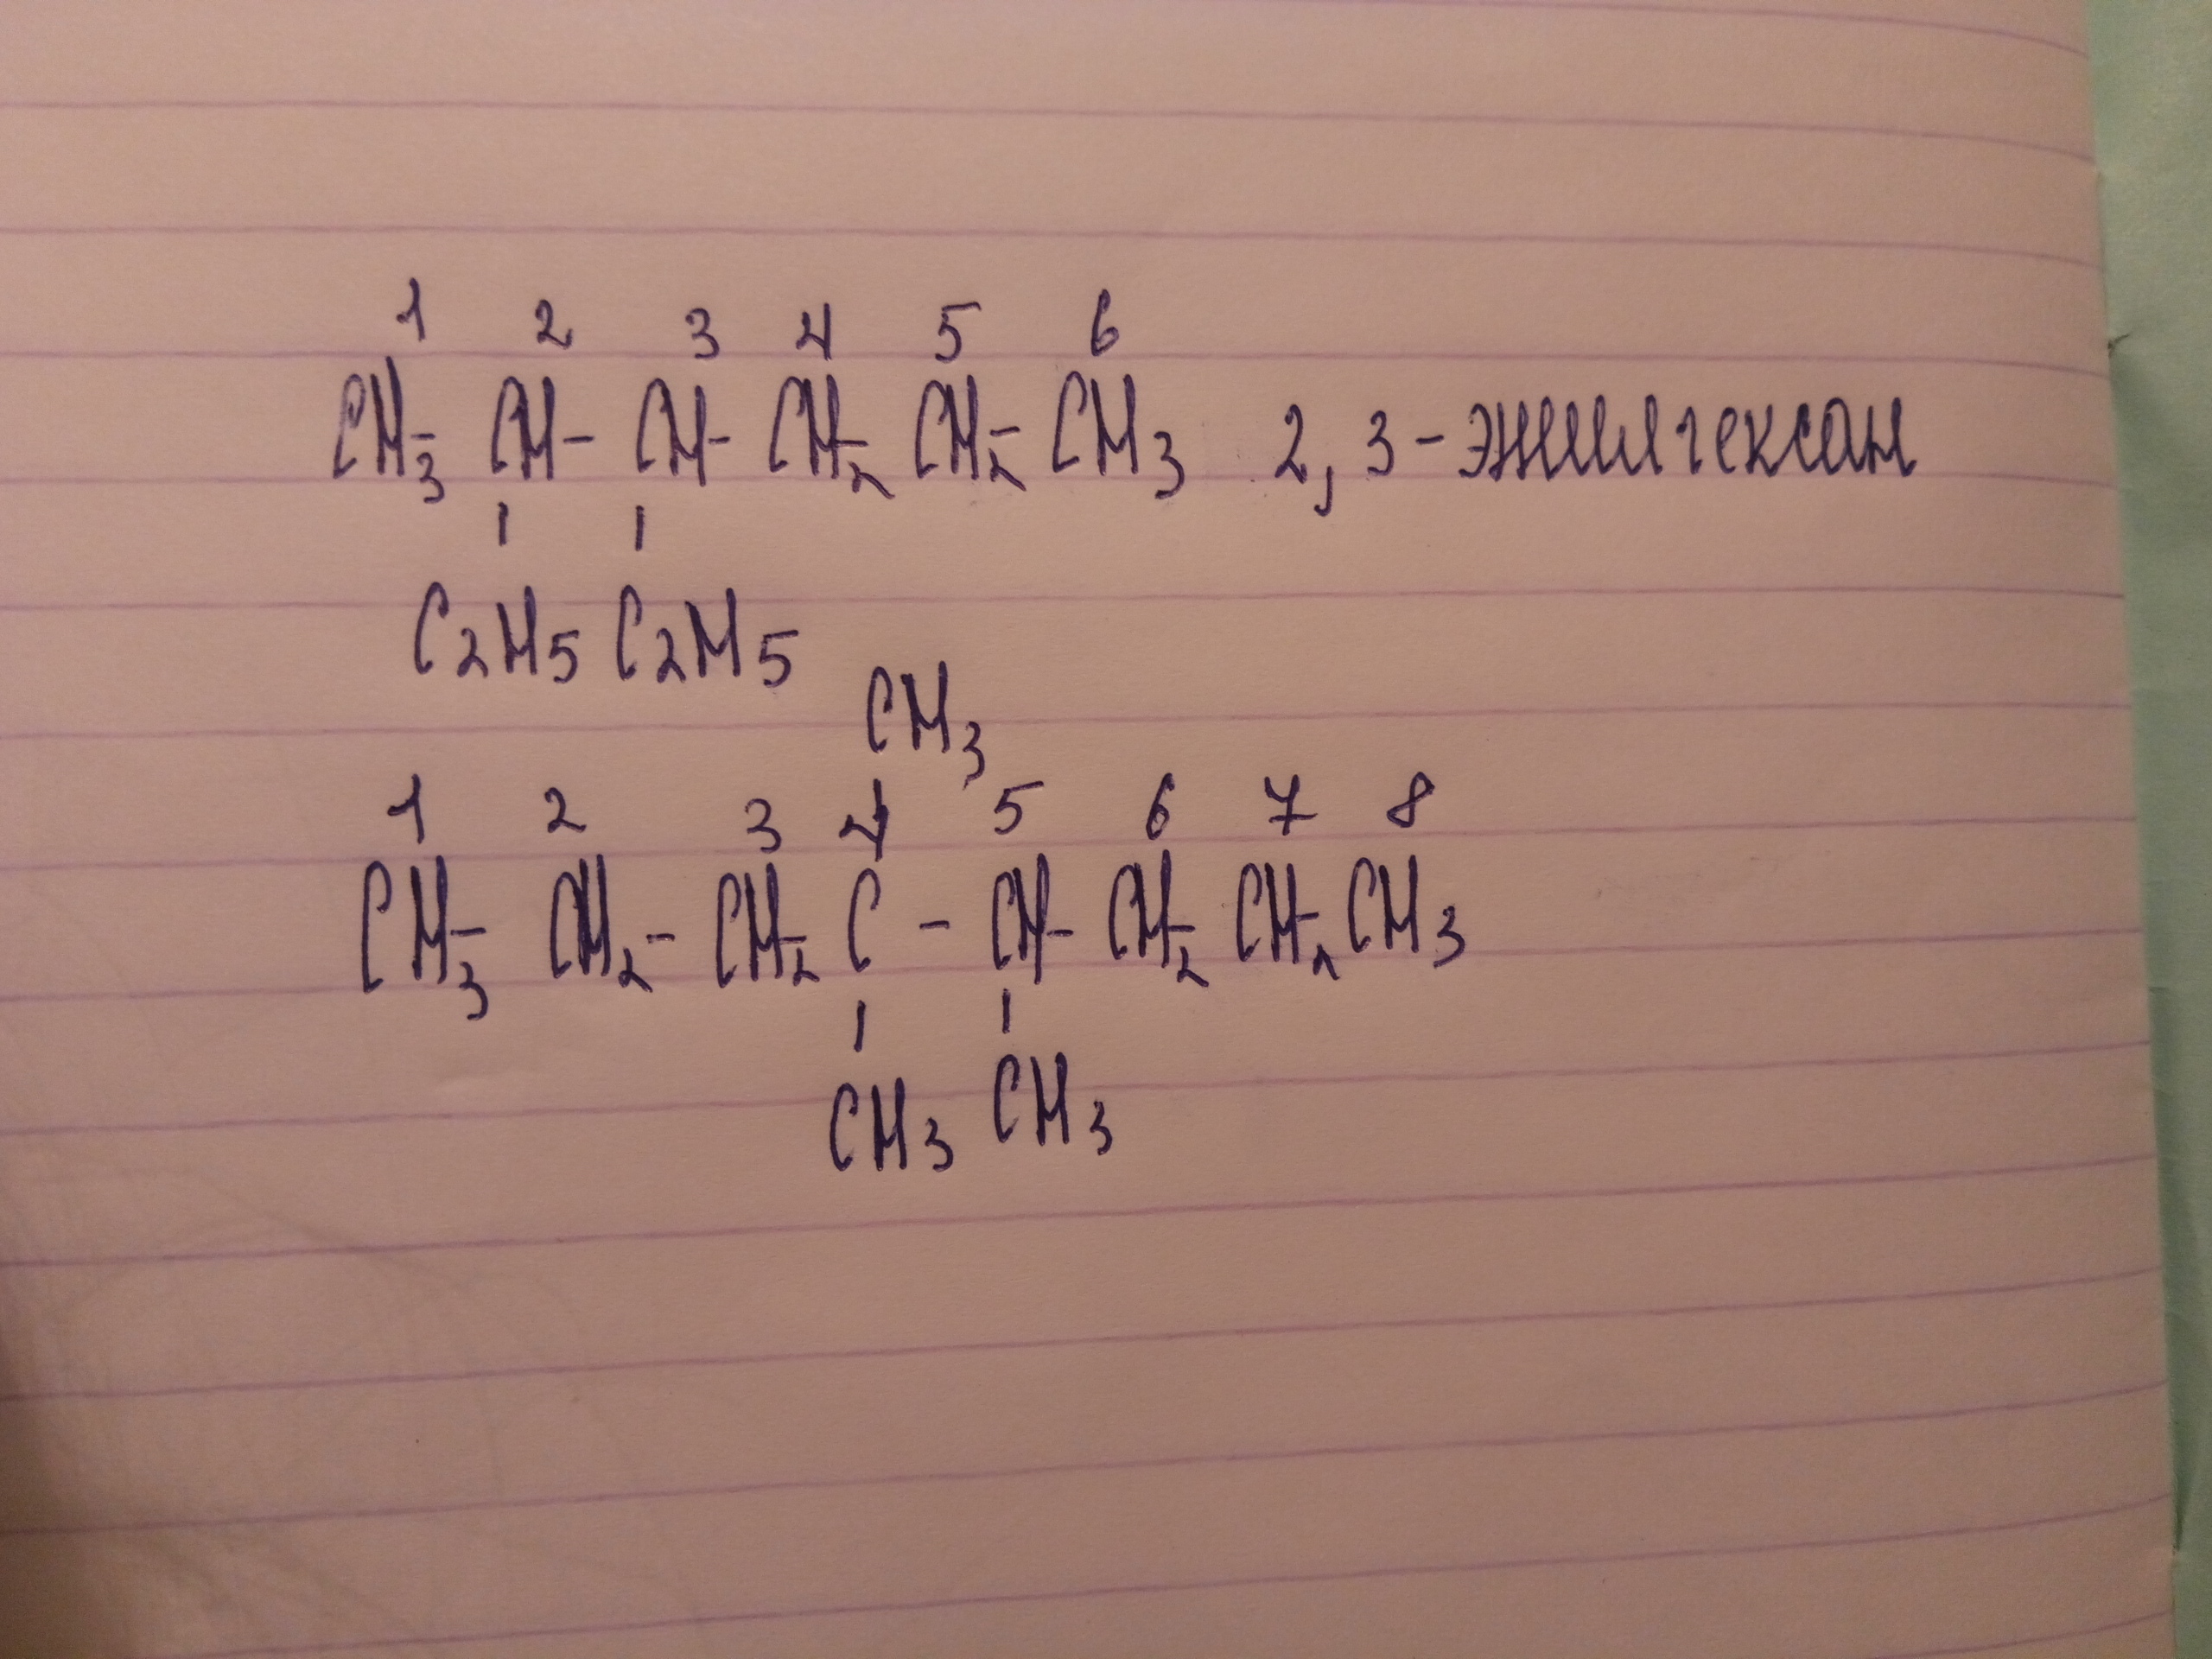 1 2 3 4 5 6
CH3- CH- CH- CH2- CH2- CH3 2,3-этилгексан
C2H5 C2H5
CH3
1 2 3 4 5 6 7 8
CH3- CH2- CH2- C - CH- CH2- CH2- CH3
CH3 CH3